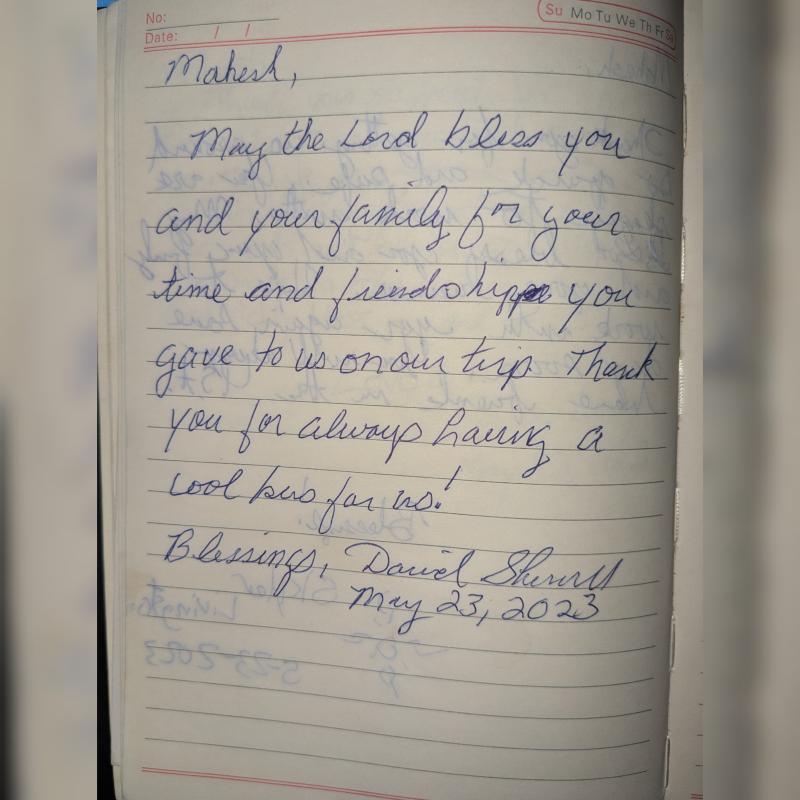 No:
Date: / /
Su Mo Tu We Th Fr Sa
Mahesh,
May the Lord bless you
and your family for your
time and friendship you
gave to us on our trip. Thank
you for always having a
cool bus for us!
Blessings, David
May 23, 2023